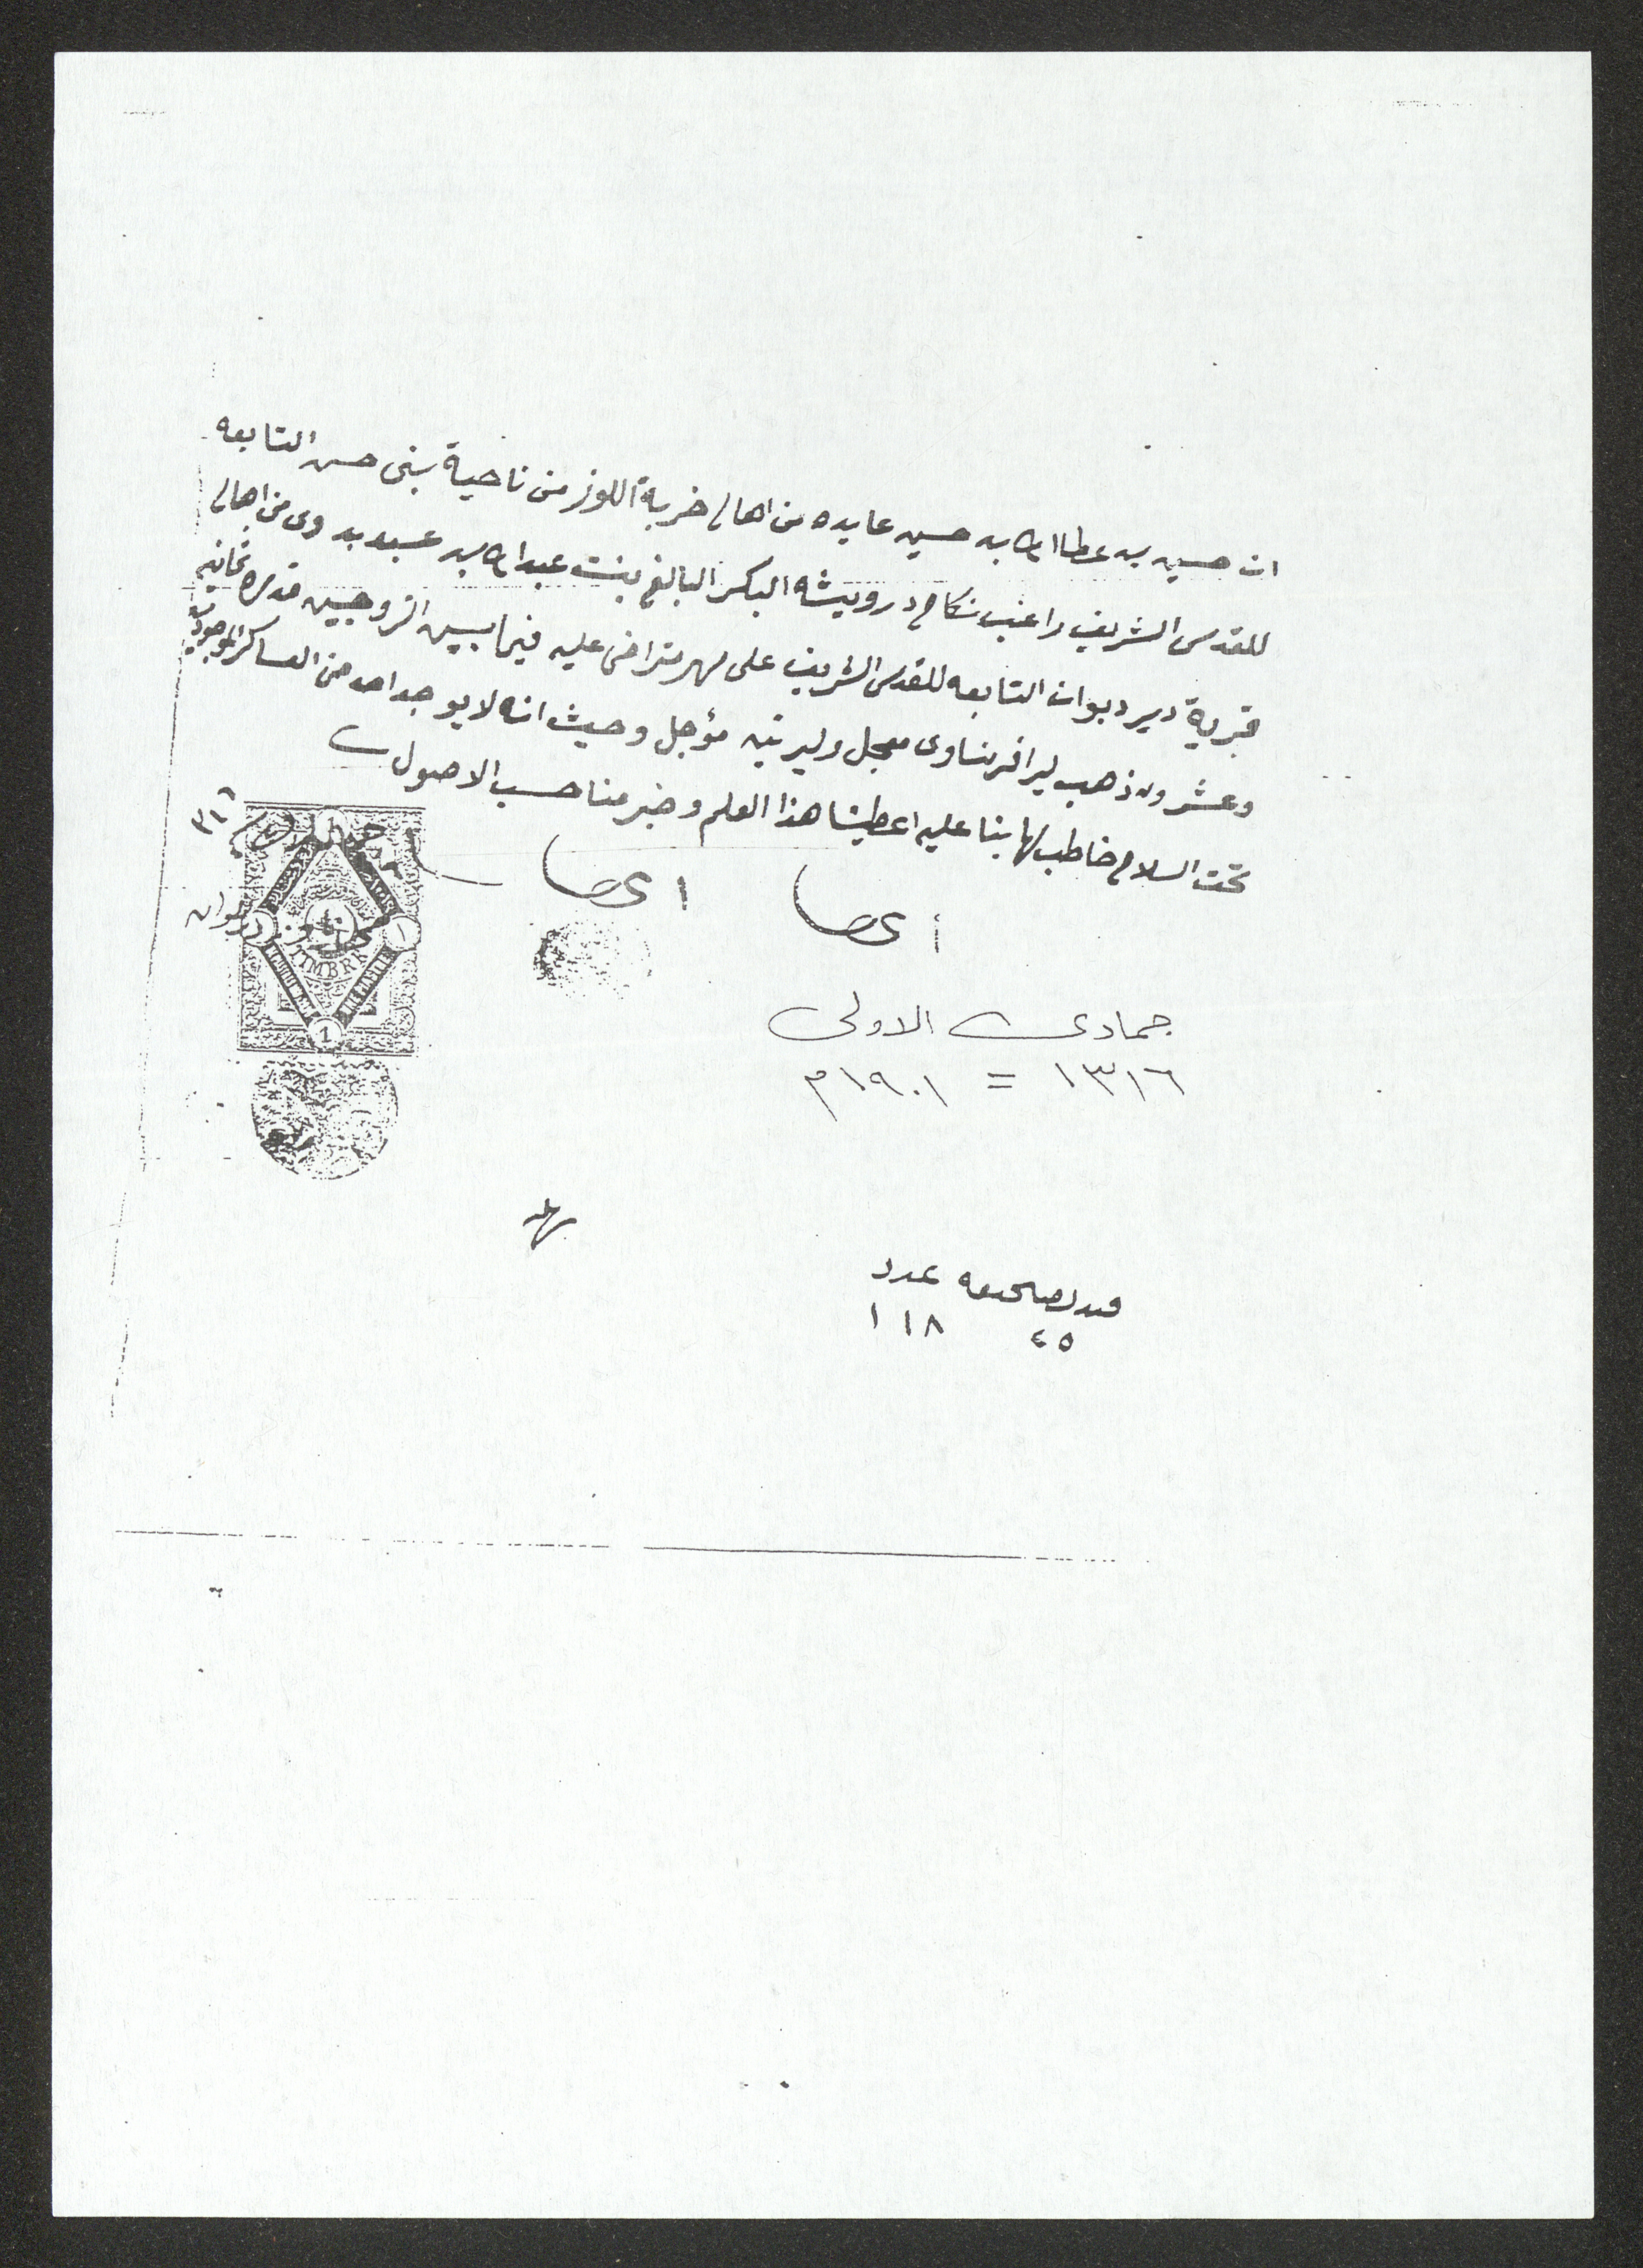 ان حسين بن عطا الله بن حسين عايده من اهالي خربة اللوز من ناحية بني حسن التابعه
للقدس الشريف راغب نكاح درويشه البكر البالغ بنت عبد الله بن عبد بدوى من اهالي
قرية دير ديوان التابعه للقدس الشريف على مهر متراضى عليه فيما بين الزوجين قدره ثمانيه
وعشرون ذهب ليرا فرنساوى معجل وليرتين مؤجل وحيث انه لا يوجد احد من العساكر الموجودين
تحت السلاح خاطب لها بنا عليه اعطينا هذا العلم وخبر منا حسب الاصول
٣١٦
ديوان
TIMBRE
1
جمادى الاولى
١٣١٦ = ١٩٠١م
قيد صحيفه عدد
٤٥ ١١٨